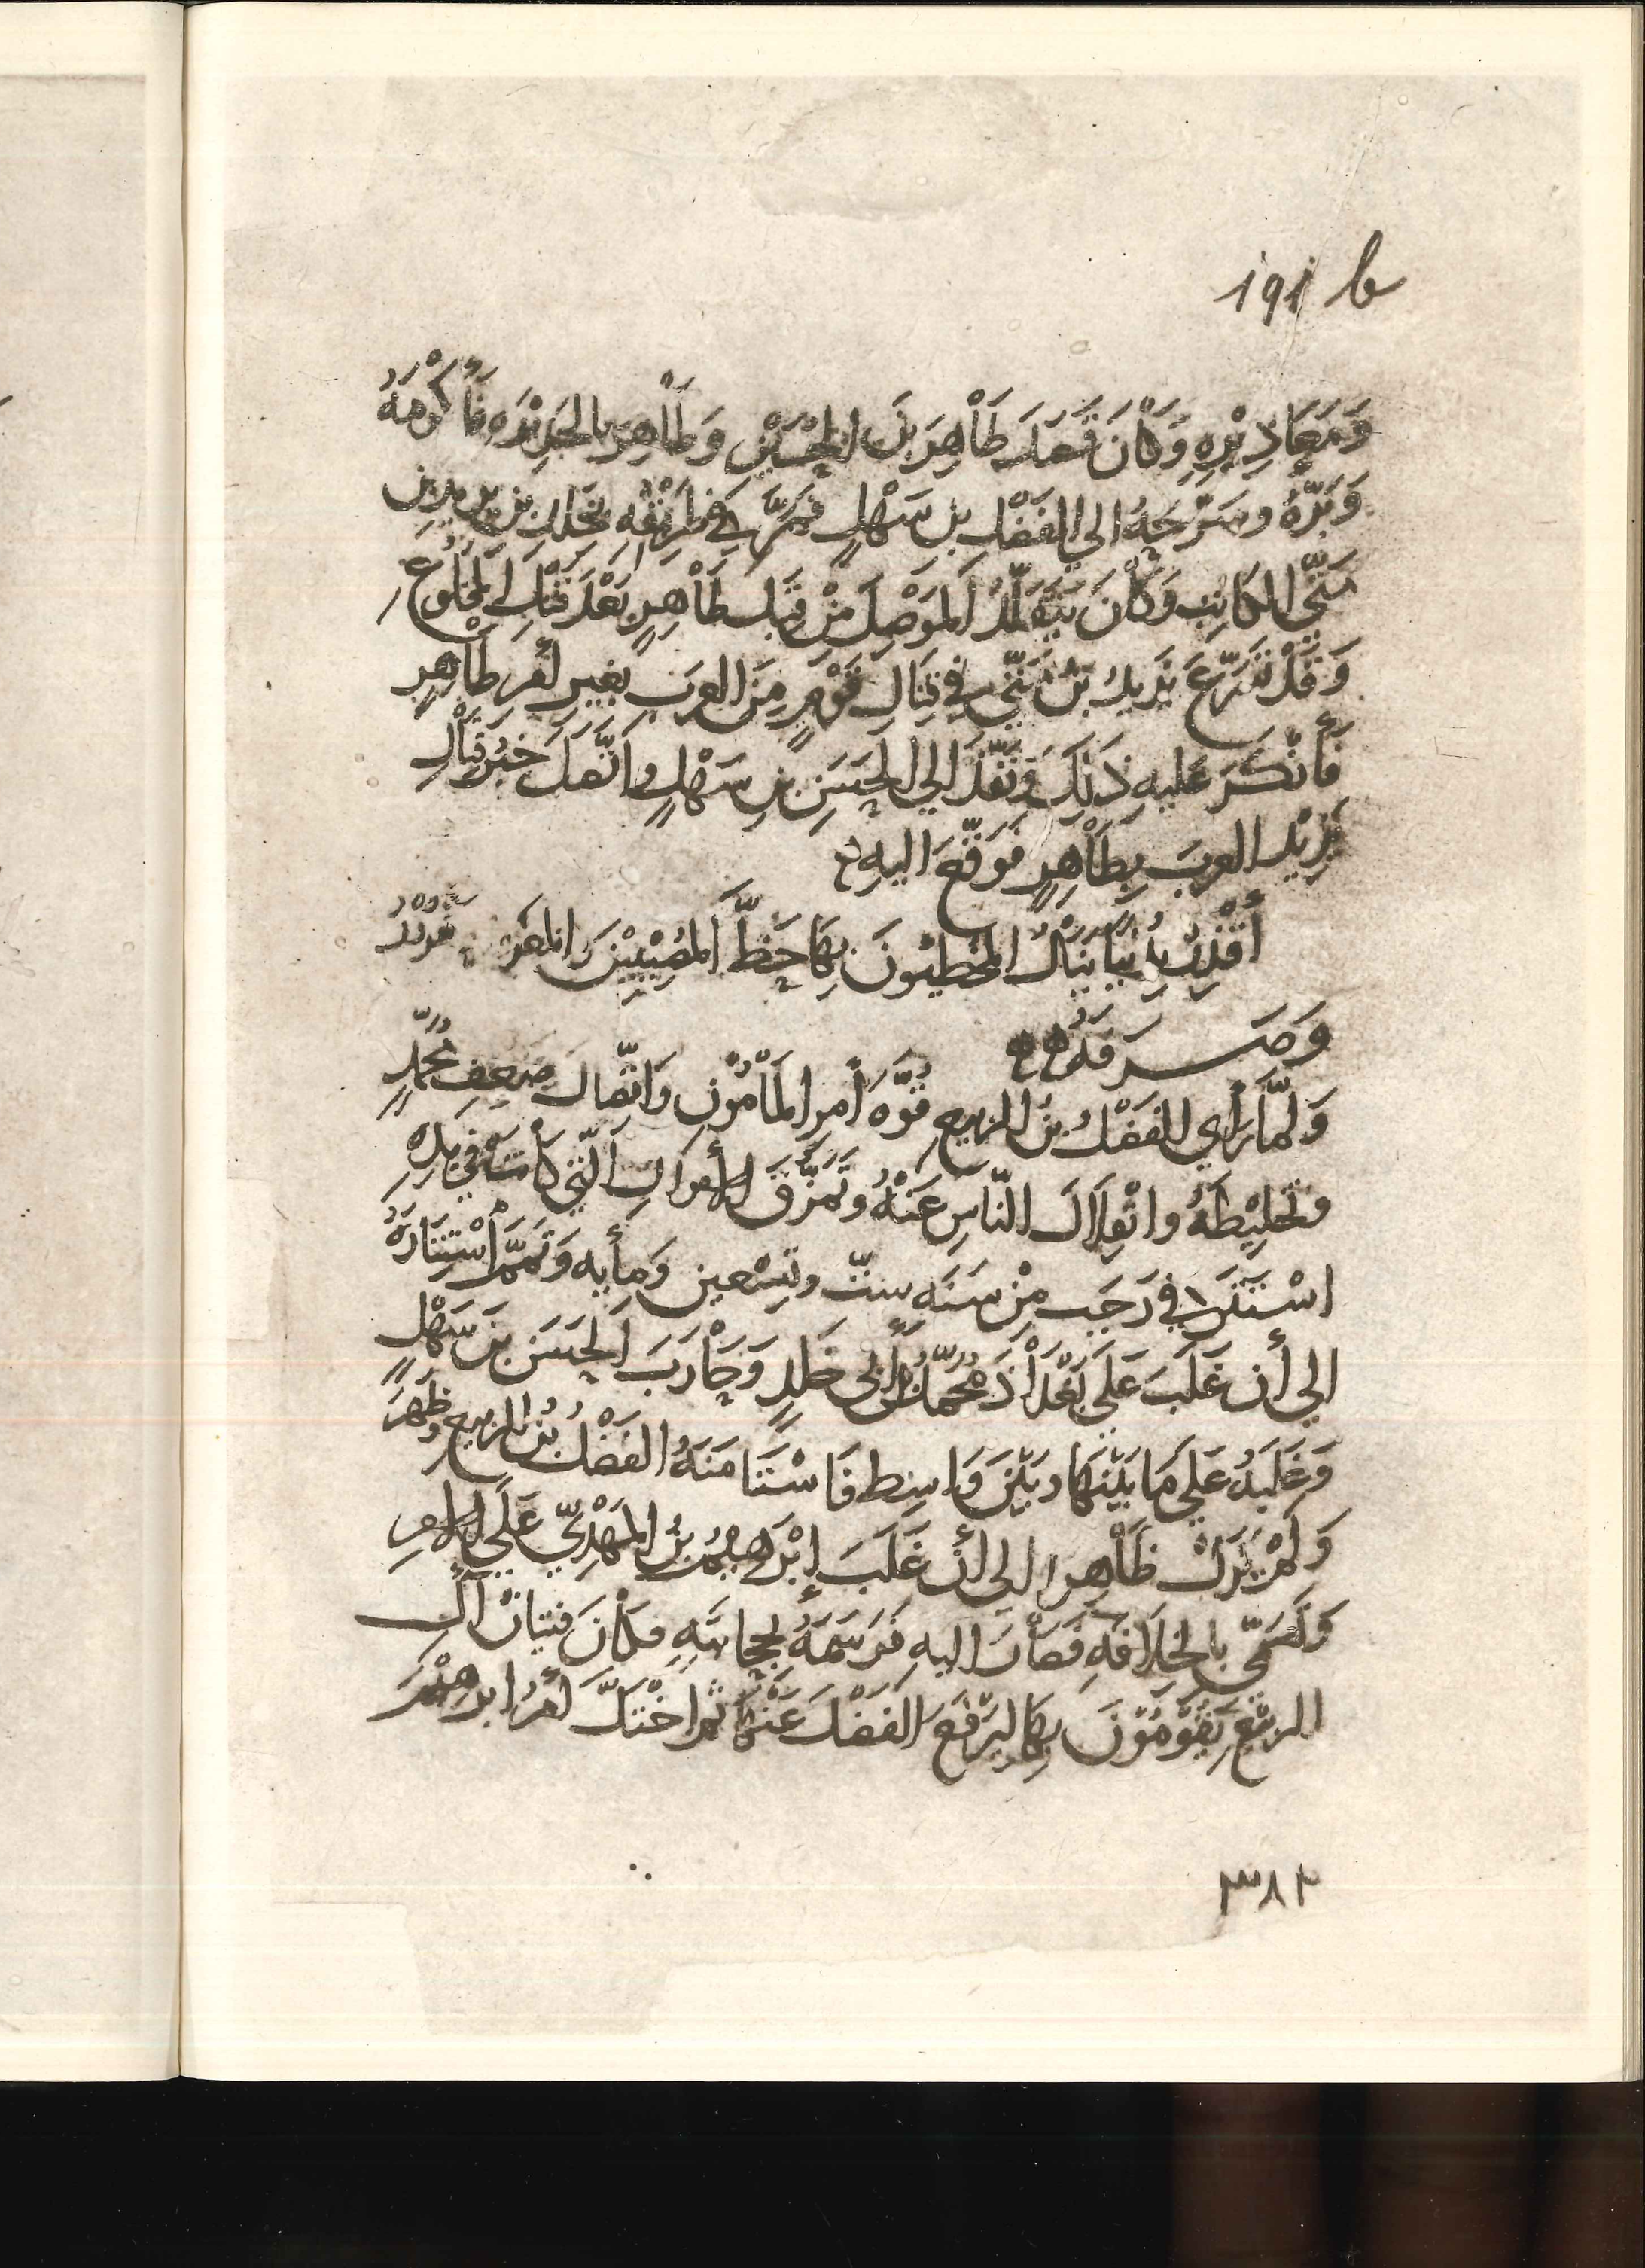 191 b
وَمَعَاذِيْرِهِ وَكَانَ قَصَدَ طَاْهِرَ بنَ الحُسَيْنِ وَطَاْهِرَ بالجَزِيْرَهِ فَأَكْرَمَهُ
وَبَرَّهُ وسَرَّحَهُ الي الفَضْلِ بن سَهْلٍ فمَرَّ في طَرِيْقِهِ بيَزِيد بن
مَتَّي الكاتِبِ وَكَاْنَ يَتَقَلَّدُ اَلمَوْصِلَ مِنْ قِبَلِ طَاْهِرٍ بَعْدَ قَتْلِ المَخْلُوْعِ
وَقَدْ تَسَرَّعَ يَزيدُ بْنُ مَتَّي في قِتَالِ قَوْمٍ مِنَ العرَبِ بغيرِ أمرِ طَاْهِرٍ
فَأَنْكَرَ عَليهِ ذَلِكَ وَنَفَذَ الي الحَسَنِ بنِ سَهْلٍ واتَّصَلَ خَبَرُ قِتَاْلِ
يَزِيْدَ العربَ بِطَاْهِرٍ فَوَقَّعَ اليهِ
أَقْذِرْ بِدُنْيَا يَنَاْلُ المُخْطِئُونَ بِهَا حَظَّ اَلمُصِيْبِيْنَ والمغرو مَغرُوْرُ
وَصَرَفَهُ
وَلَمَّا رَأَي الفَضْلُ بنُ الربيعِ قُوَّهَ أَمرِ المَاْمُوْنِ وَاتِّصَالَ ضَعفِ مُحَمَّدٍ
وتَخلِيْطَهُ وانْفِلَالَ النَّاسِ عَنْهُ وتَمَزُّقَ الأموَالِ الَّتي كَانَتْ في يَدِهِ
اسْتَتَرَ في رَجَب مِنْ سَنَهِ سِتّ وتِسْعِين وَمأيه وَتَمَّمَ اَسْتِتَارَهُ
الي أن غَلَبَ عَلَي بَغْدَاْذَ مُحَمَّدُ بنُ أَبي خَلدٍ وَحَاْرَبَ اَلحَسَن بنَ سَهْلٍ
وَغَلَبَهُ عَلَي مَا بَيْنَهَا وبَيْنَ وَاسِط فَاسْتَنَامَنَهُ الفَضْلُ بنُ الربيع وظَهَرَ
وَلَمْ يَزَلْ ظَاْهِرا الي أنْ غَلَبَ إِبْرَهِيْمُ بنُ المَهْدِيّ عَلَي الامرِ
وَتَسَمَّي بالخِلَافَهِ فَصَاْرَ اليهِ فَرَسَمَهُ بِحِجَابَتِهِ فكَاْنَ فتيَانُ آلِ
الربيْع يَقُوْمُوْنَ بِهَا ليَرْفَعَ الفَضْلَ عَنْهَا ثم اخْتَلَّ أمرُ ابرهيْمَ
٣٨٢